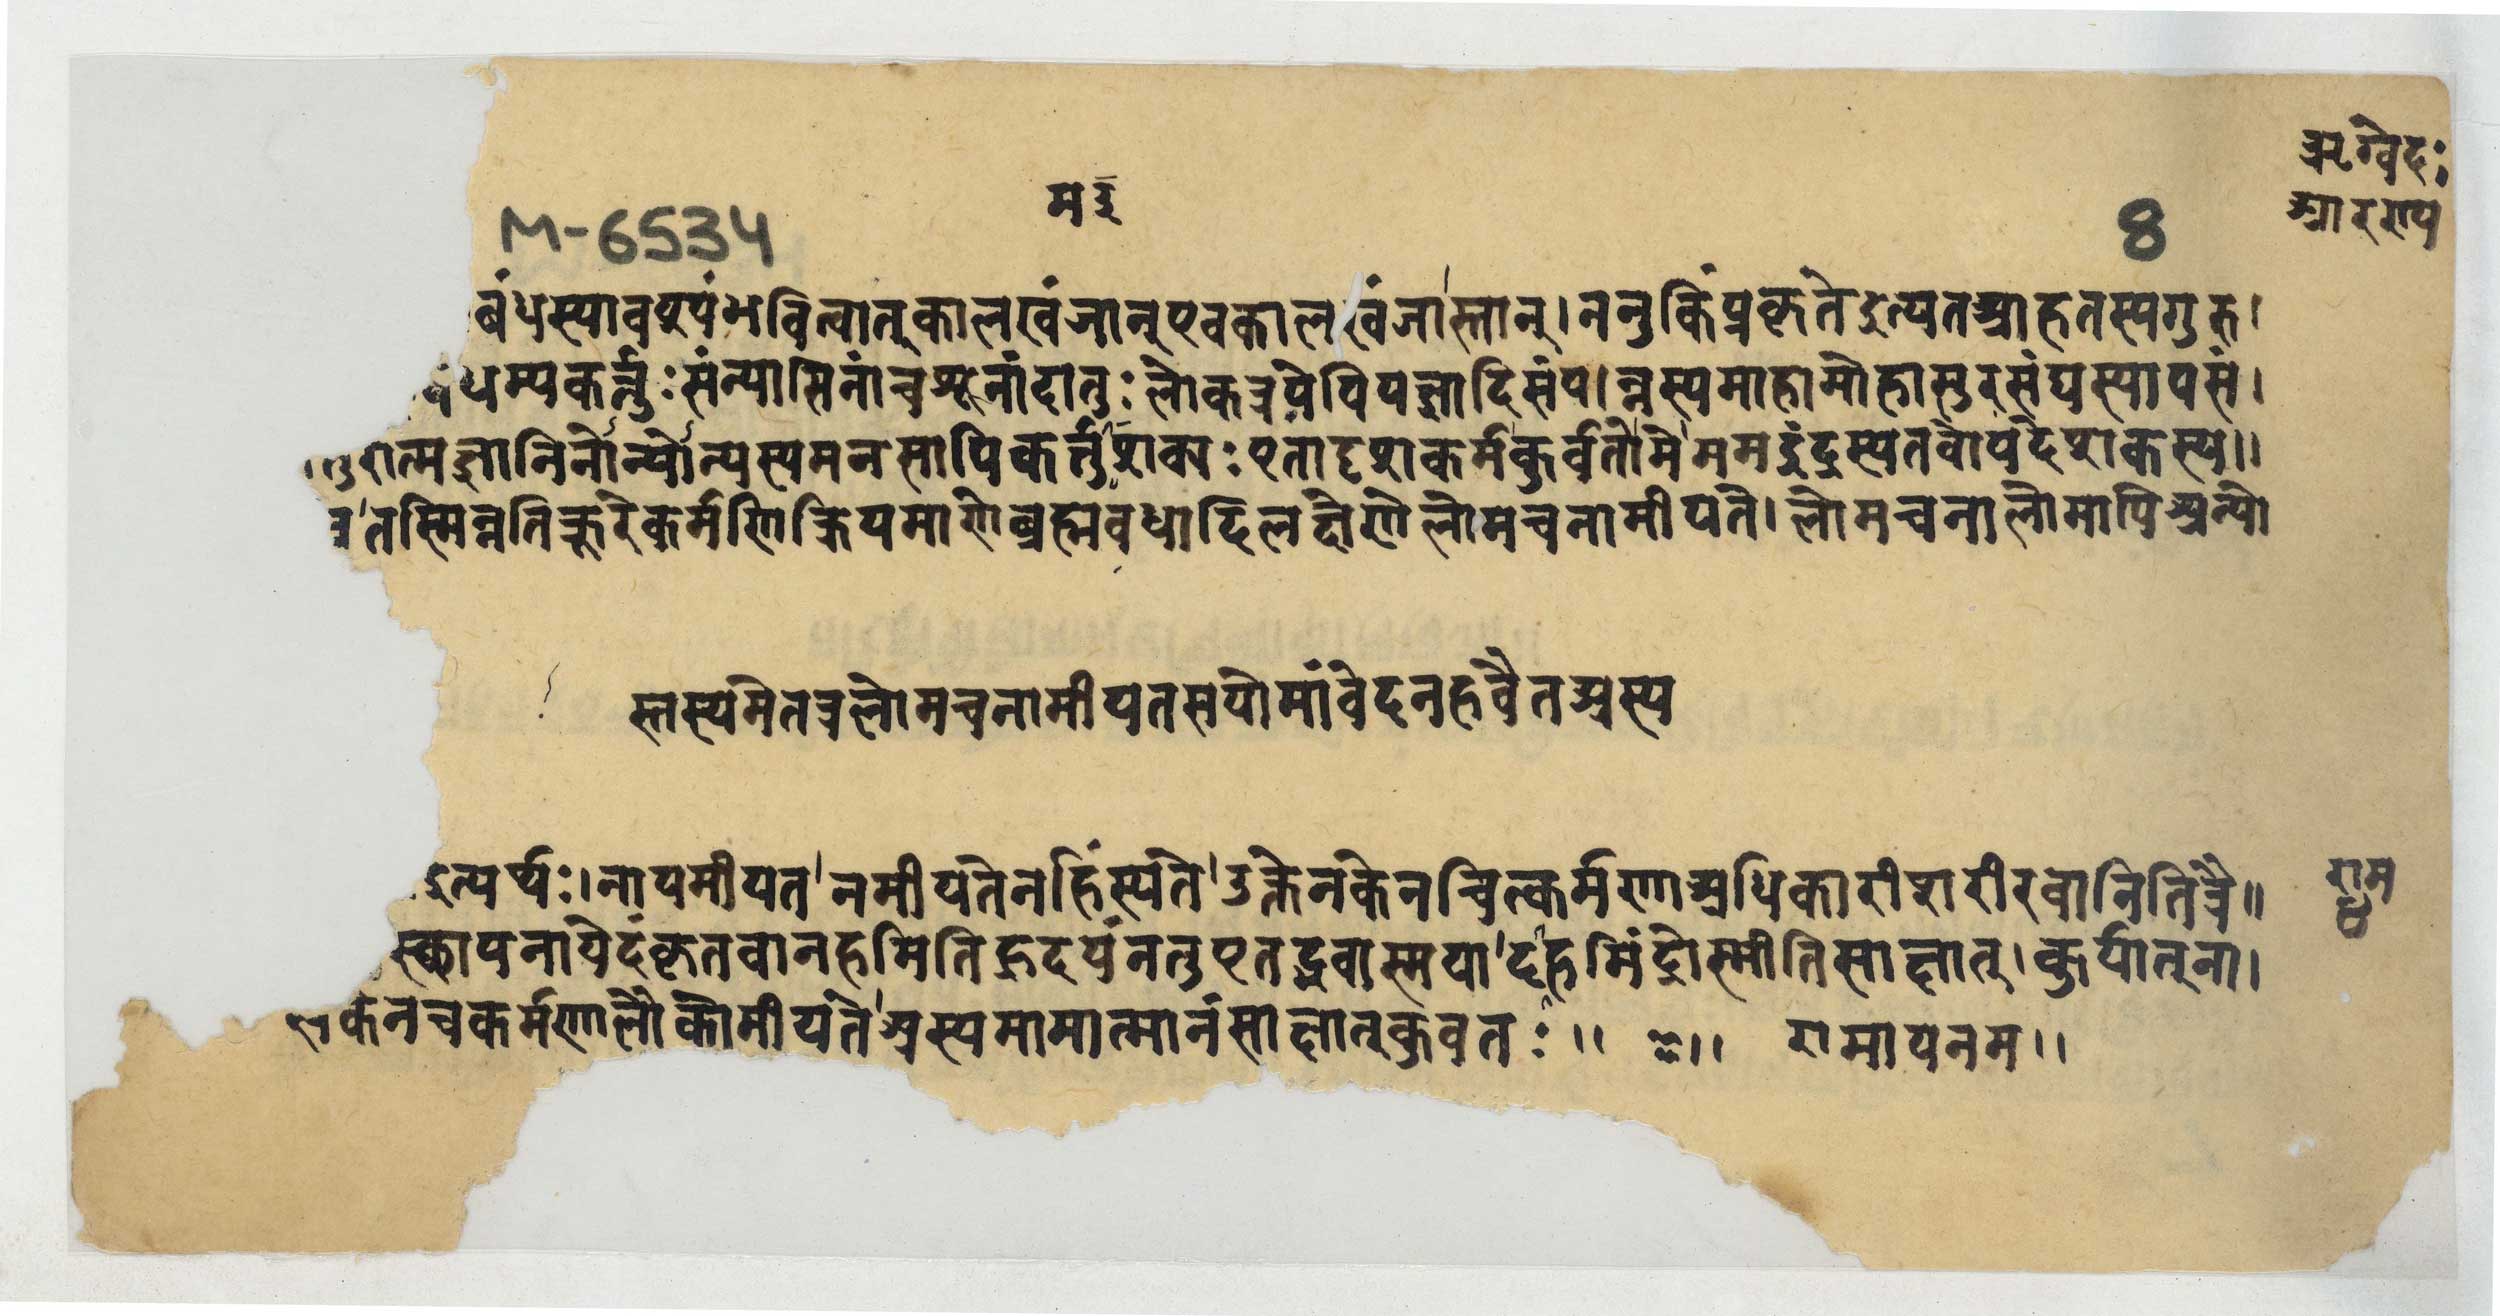 ऋग्वेदः
आरण्य
मइ
M-6534
8
बंधस्यावश्यंभवित्वात्कालखंजान्एवकालखंजास्तान्।ननुकिंप्रकृतेइत्यतआहतस्यगुरु।
धम्यकर्तुःसंन्यासिनांचशूनांदातुःलोकत्रयेपियज्ञादिसंप।न्नस्यमाहामोहासुरसंघस्यापसं।
रात्मज्ञानिनोन्योन्यस्यमनसापिकर्त्तुशक्यःएतादृशकर्मकुर्वतोमेममइंद्रस्यतवोपदेशकस्य।।
तस्मिन्नतिक्रूरेकर्मणिक्रियमाणेब्रह्मवधादिलक्षणेलोमचनामीयते।लोमचनालोमापिअन्यो
स्तस्यमेतत्रलोमचनामीयतसयोमांवेदनहवैतअस्य
इत्यर्थः।नायमीयतनमीयतेनहिंस्यतेउक्तेनकेनचित्कर्मणाअधिकारीशरीरवानितित्रै॥
स्थापनायेदंकृतवानहमितिहृदयंनतुएतद्ध्रुवास्मयादहमिंद्रोस्मीतिसाक्षात्।कुर्यात्ना।
केनचकर्मणालोकोमीयतेअस्यमामात्मानंसाक्षात्कुवतः।। ।। रामायनम।।
राम
४